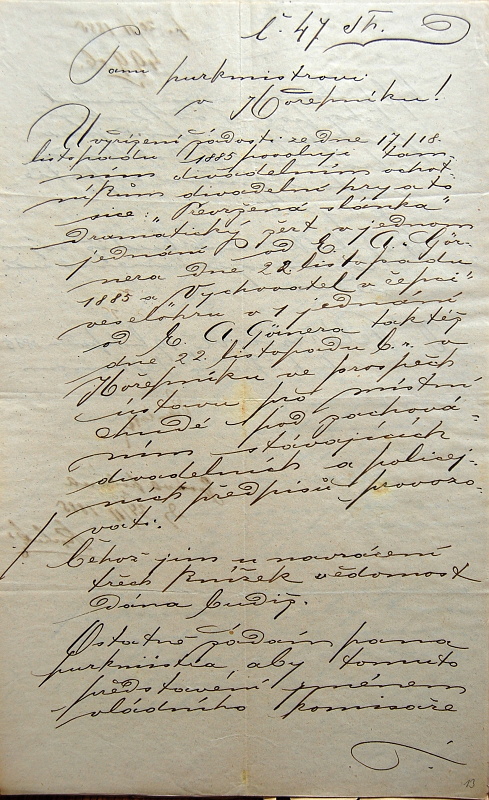 č. 47 Th.
Panu purkmistrovi
v Hořepníku!
U vyřízení žádosti ze dne 17/18.
listopadu 1885 povoluji tam-
ním divadelním ochot-
níkům divadelní hry a to
sice: „Převržená slánka"
dramatický žert v jednom
jednání od E. A. Gör-
nera dne 22. listopadu
1885 a „Vychovatel v čepci"
veselohru v 1 jednání
od E. A Gönera taktéž
dne 22. listopadu b. r. v
Hořepníku ve prospěch
ústavu pro místní
chudé pod zachová-
ním stávajících
divadelních a policej-
ních předpisů provozo-
vati.
Čehož jim u navrácení
třech knížek vědomost
dána budiž.
Ostatně žádám pana
purkmistra, aby tomuto
představení jménem
vládního komisaře
13